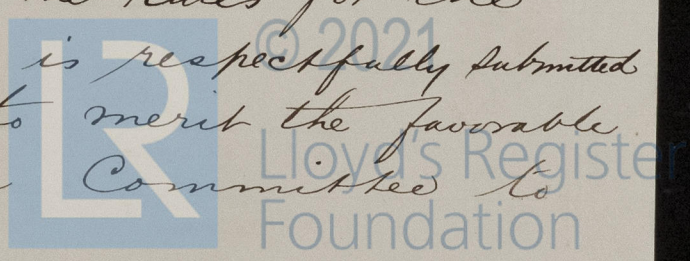 the Rules for the
is respectfully submitted
to merit the favorable
Committee to
© 2021
LR
Lloyd's Register
Foundation